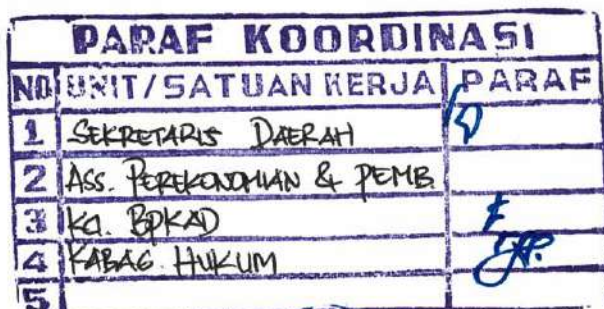 PARAF KOORDINASI
NO UNIT/SATUAN KERJA PARAF
1 SEKRETARIS DAERAH
2 ASS. PEREKONOMIAN & PEMB.
3 Ka. BPKAD
4 KABAG. HUKUM
5